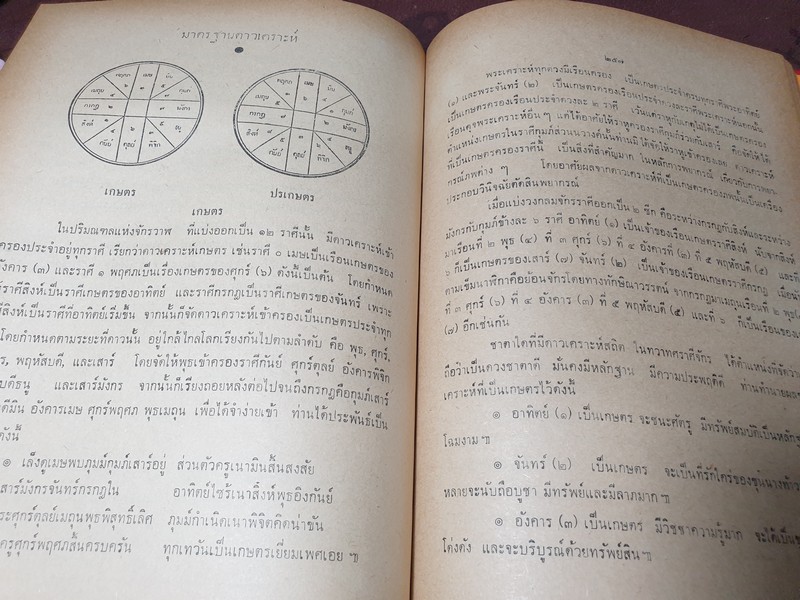 มาตรฐานดาวเคราะห์
พฤศภ เมษ มีน
เมถุน กุมภ์
กรกฎ มังกร
สิงห์ ธนู
กันย์ ตุลย์ พิจิก
พฤศภ เมษ มีน
เมถุน กุมภ์
กรกฎ มังกร
สิงห์ ธนู
กันย์ ตุลย์ พิจิก
เกษตร ปรเกษตร
เกษตร
ในปริมณฑลแห่งจักรวาฬ ที่แบ่งออกเป็น ๑๒ ราศีนั้น มีดาวเคราะห์เข้า
ครองประจำอยู่ทุกราศี เรียกว่าดาวเคราะห์เกษตร เช่นราศี ๐ เมษเป็นเรือนเกษตรของ
อังคาร (๓) และราศี ๑ พฤศภเป็นเรือนเกษตรของศุกร์ (๖) ดังนี้เป็นต้น โดยกำหนด
ราศีสิงห์เป็นราศีเกษตรของอาทิตย์ และราศีกรกฎเป็นราศีเกษตรของจันทร์ เพราะ
สิงห์เป็นราศีที่อาทิตย์เริ่มขึ้น จากนั้นก็จัดดาวเคราะห์เข้าครองเป็นเกษตรประจำทุก
โดยกำหนดตามระยะที่ดาวนั้น อยู่ใกล้ไกลโลกเรียงกันไปตามลำดับ คือ พุธ, ศุกร์,
ร, พฤหัสบดี, และเสาร์ โดยจัดให้พุธเข้าครองราศีกันย์ ศุกร์ตุลย์ อังคารพิจิก
บดีธนู และเสาร์มังกร จากนั้นก็เรียงถอยหลังต่อไปจนถึงกรกฎคือกุมภ์เสาร์
ดีมีน อังคารเมษ ศุกร์พฤศภ พุธเมถุน เพื่อให้จำง่ายเข้า ท่านได้ประพันธ์เป็น
ดังนี้
๑ เล็งดูเมษพบภุมม์กุมภ์เสาร์อยู่ ส่วนตัวครูเนามินสิ้นสงสัย
เสาร์มังกรจันทร์กรกฎใน อาทิตย์ไซร้เนาสิงห์พุธอิงกันย์
ระศุกร์ตุลย์เมถุนพุธพิสุทธิ์เลิศ ภุมม์กำเนิดเนาพิจิตคิดน่าขัน
ครูศุกร์พฤศภสิ้นครบครัน ทุกเทวันเป็นเกษตรเยี่ยมเพศเอย ฯ
๒๕๗
พระเคราะห์ทุกดวงมีเรือนครอง เป็นเกษตรประจำครบทุกราศีพระอาทิตย์
(๑) และพระจันทร์ (๒) เป็นเกษตรครองเรือนประจำดวงละราศี
เป็นเกษตรครองเรือนประจำดวงละ ๒ ราศี
ประกอบวินิจฉัยตัดสินพยากรณ์
เมื่อแบ่งวงกลมจักรราศีออกเป็น ๒ ซีก คือระหว่างกรกฎกับสิงห์และระหว่าง
มังกรกับกุมภ์ข้างละ ๖ ราศี อาทิตย์ (๑) เป็นเจ้าของเรือนเกษตรราศีสิงห์ นับจากสิงห์
มาเรือนที่ ๒ พุธ (๔) ที่ ๓ ศุกร์ (๖) ที่ ๔ อังคารที่ (๓) ที่ ๕ พฤหัสบดี (๕) และที่
๖ ก็เป็นเรือนของเสาร์ (๗) จันทร์ (๒) เป็นเจ้าของเรือนเกษตรราศีกรกฎ
ที่ ๓ ศุกร์ (๖) ที่ ๔ อังคาร (๓) ที่ ๕ พฤหัสบดี (๕) และที่ ๖ ก็เป็นเรือนของ
(๗) อีกเช่นกัน
ชาตาใดที่มีดาวเคราะห์สถิต ในทวาทศราศีจักร ได้ตำแหน่งที่จัดวา
ถือว่าเป็นดวงชาตาดี มั่นคงมีหลักฐาน มีความประพฤติดี ท่านทำนาย
เคราะห์ที่เป็นเกษตรไว้ดังนี้
๑ อาทิตย์ (๑) เป็นเกษตร จะชนะศัตรู มีทรัพย์สมบัติเป็นหลักฐ
โฉมงาม ฯ
๑ จันทร์ (๒) เป็นเกษตร จะเป็นที่รักใคร่ของขุนนาง
หลายจะนับถือบูชา มีทรัพย์และมีลาภมาก ฯ
๑ อังคาร (๓) เป็นเกษตร มีวิชชาความรู้มาก จะได้เป็น
โด่งดัง และจะบริบูรณ์ด้วยทรัพย์สิน ฯ